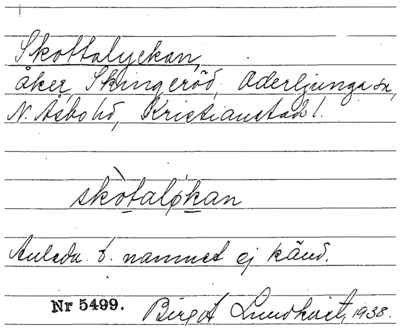 Skottalyckan,
åker, Skingeröd, Oderljunga sn,
N. Åsbo hd, Kristianstads l.
skòtaløkan
Anledn. t. namnet ej känd.
Nr 5499. Birgit Lundkvist, 1938.